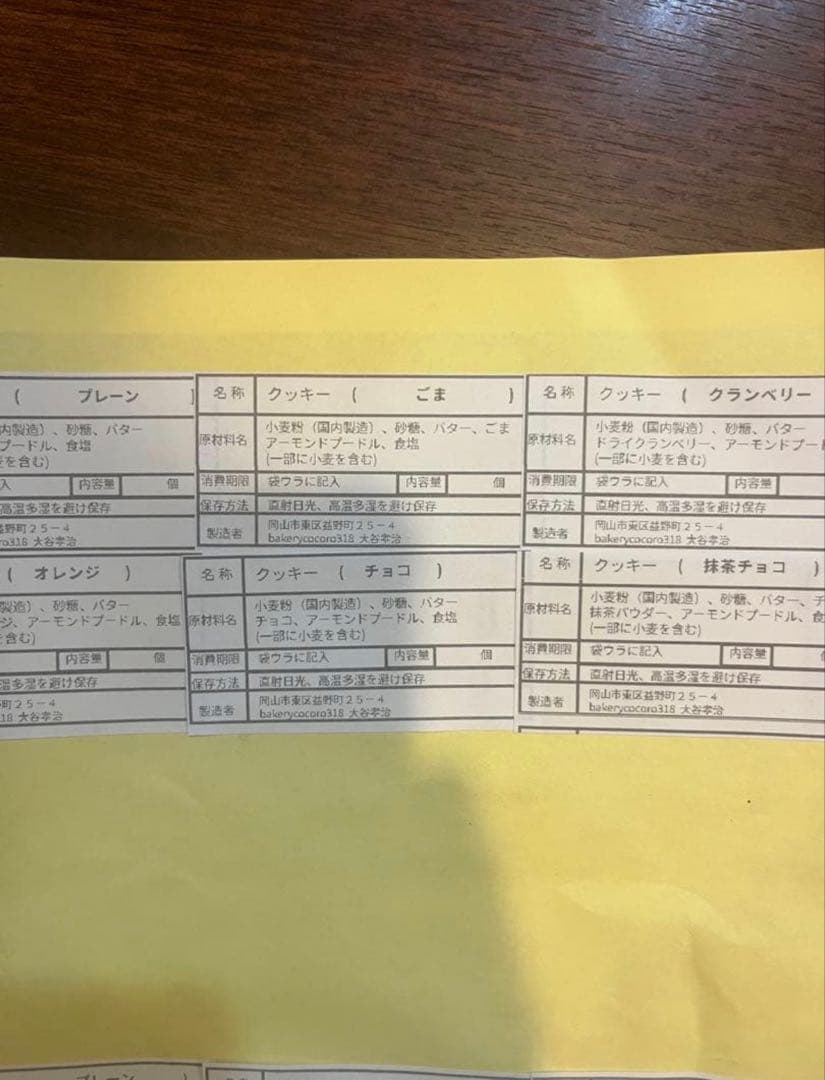 ( プレーン )
内製造）、砂糖、バター
プードル、食塩
を含む)
入 内容量 個
高温多湿を避け保存
益野町２５－４
ro318 大谷孝治
名称 クッキー ( ごま )
原材料名 小麦粉（国内製造）、砂糖、バター、ごま
アーモンドプードル、食塩
(一部に小麦を含む)
消費期限 袋ウラに記入 内容量 個
保存方法 直射日光、高温多湿を避け保存
製造者 岡山市東区益野町２５－４
bakerycocoro318 大谷孝治
名称 クッキー ( クランベリー
原材料名 小麦粉（国内製造）、砂糖、バター
ドライクランベリー、アーモンドプード
(一部に小麦を含む)
消費期限 袋ウラに記入 内容量
保存方法 直射日光、高温多湿を避け保存
製造者 岡山市東区益野町２５－４
bakerycocoro318 大谷孝治
( オレンジ )
製造）、砂糖、バター
ジ、アーモンドプードル、食塩
を含む)
内容量 個
温多湿を避け保存
町２５－４
318 大谷孝治
名称 クッキー ( チョコ )
原材料名 小麦粉（国内製造）、砂糖、バター
チョコ、アーモンドプードル、食塩
(一部に小麦を含む)
消費期限 袋ウラに記入 内容量 個
保存方法 直射日光、高温多湿を避け保存
製造者 岡山市東区益野町２５－４
bakerycocoro318 大谷孝治
名称 クッキー ( 抹茶チョコ )
原材料名 小麦粉（国内製造）、砂糖、バター、チ
抹茶パウダー、アーモンドプードル、食
(一部に小麦を含む)
消費期限 袋ウラに記入 内容量
保存方法 直射日光、高温多湿を避け保存
製造者 岡山市東区益野町２５－４
bakerycocoro318 大谷孝治
プレーン )